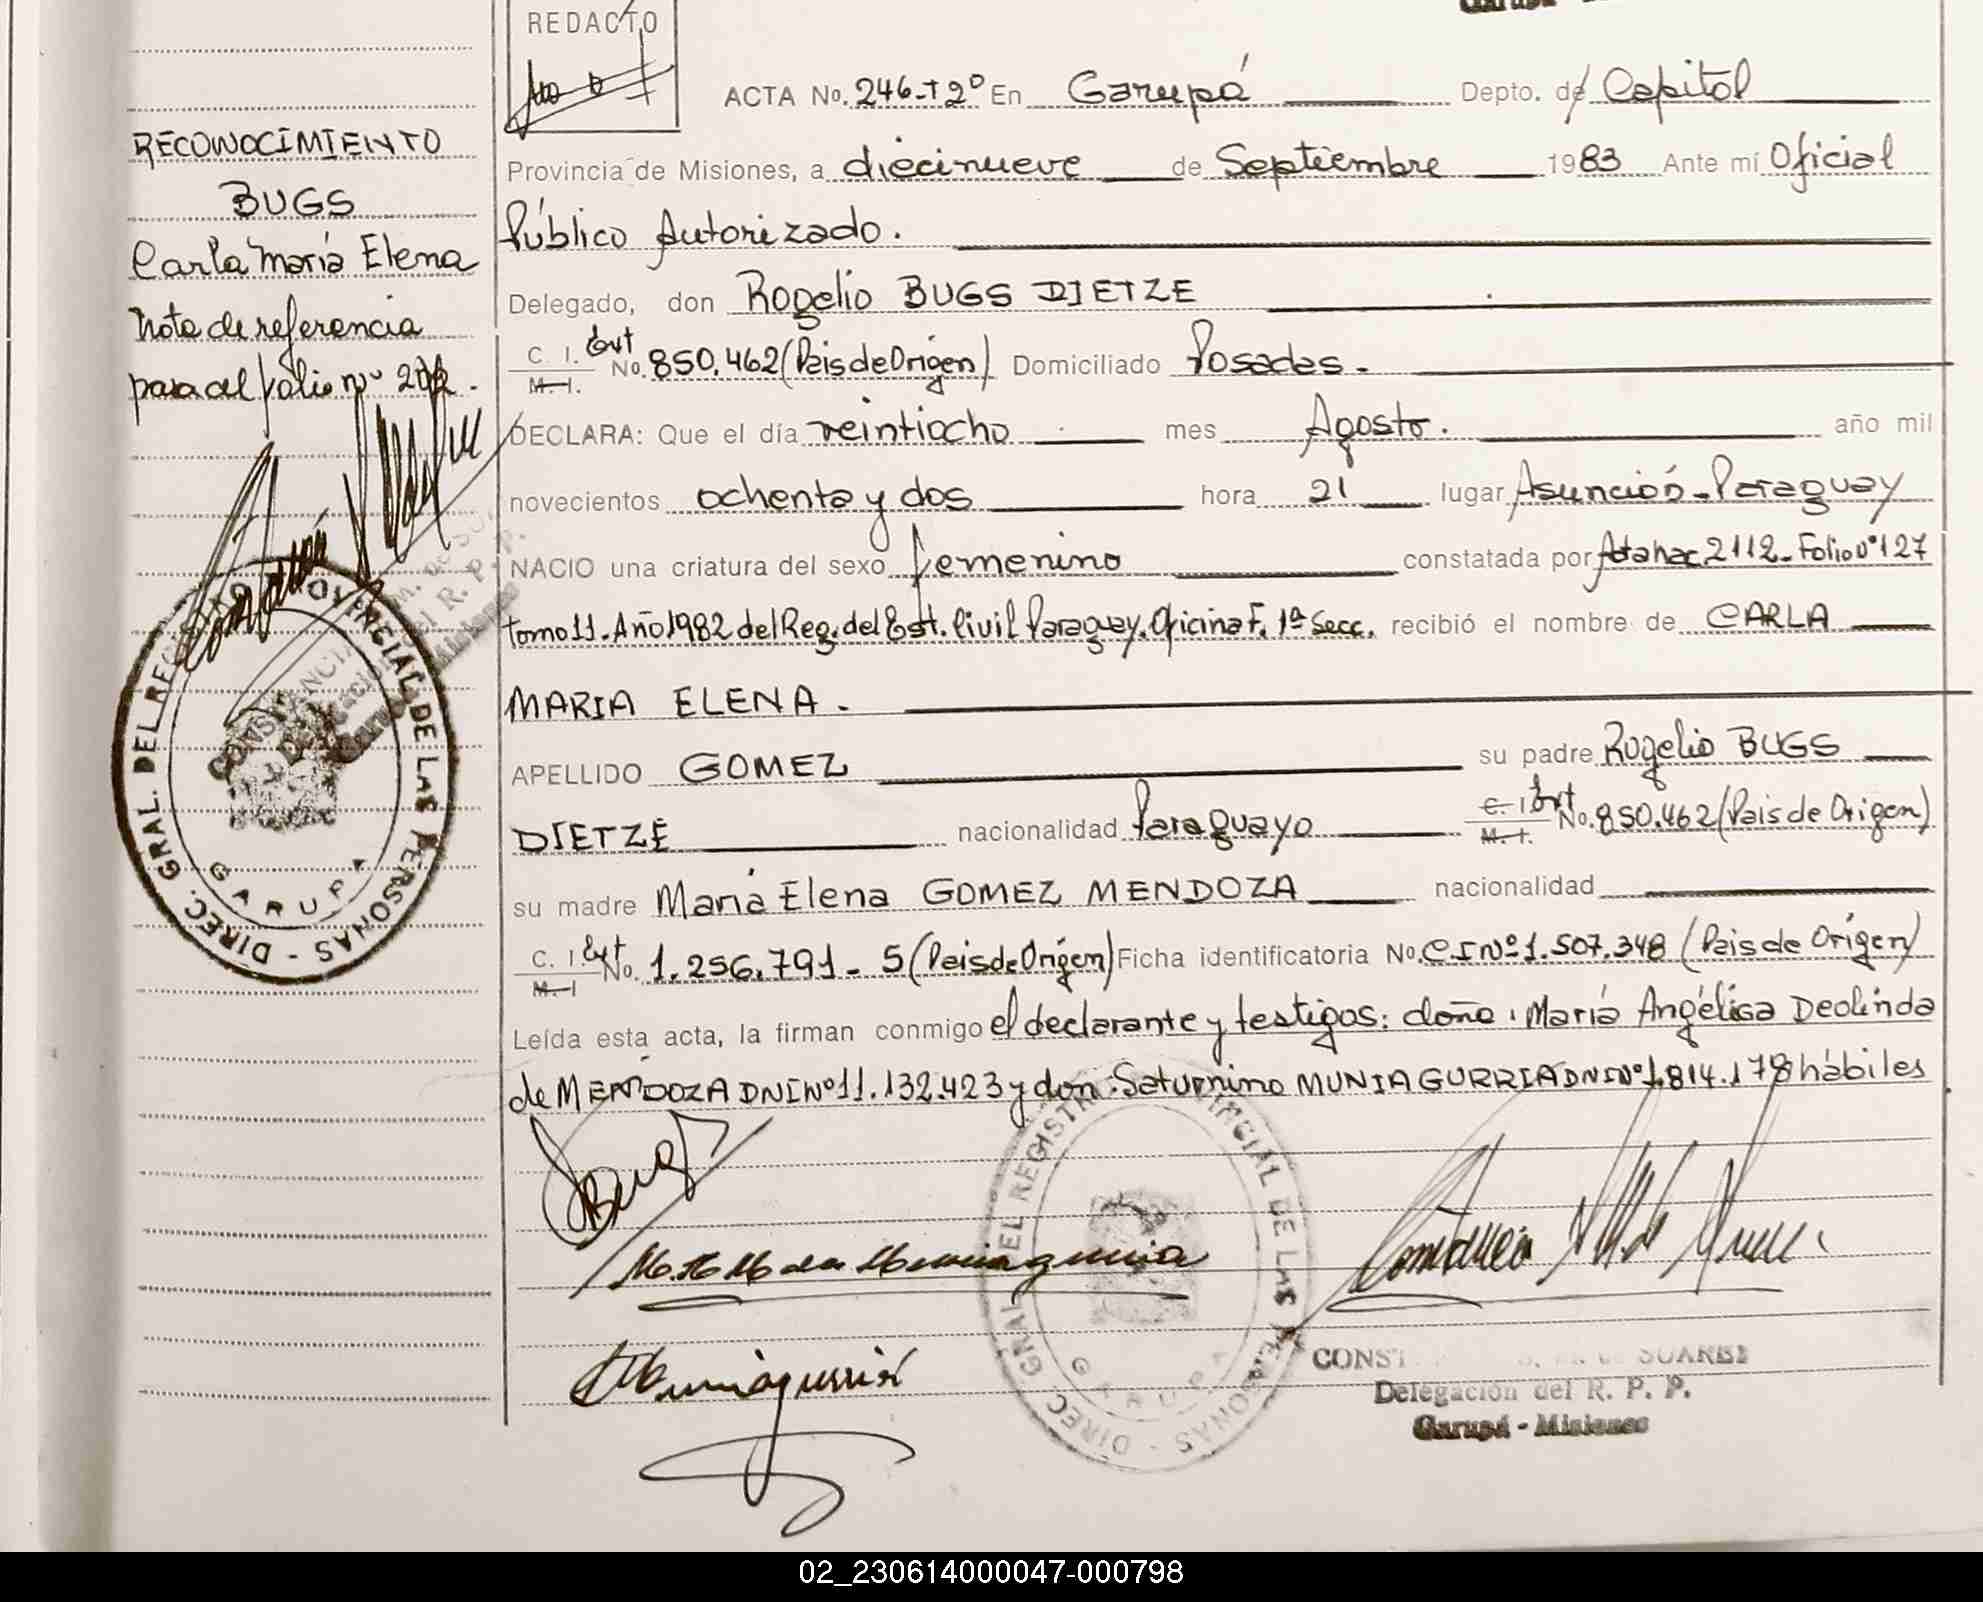 REDACTO
ACTA No. 246-T2º En Garupá Depto. de Capital
Provincia de Misiones, a diecinueve de Septiembre 1983 Ante mí Oficial
Público Autorizado.
Delegado, don Rogelio BUGS DIETZE
C. I. Ext
M. I. No. 850.462 (Pais de Orígen) Domiciliado Posadas.
DECLARA: Que el día veintiocho mes Agosto. año mil
novecientos ochenta y dos hora 21 lugar Asunción - Paraguay
NACIO una criatura del sexo femenino constatada por Acta nac 2112 - Folio nº 127
tomo 11. Año 1982 del Reg. del Est. Civil Paraguay. Oficina F. 1ª Secc. recibió el nombre de CARLA
MARIA ELENA.
APELLIDO GOMEZ su padre Rogelio BUGS
DIETZE nacionalidad Paraguayo C. I. Ext
M. I. No. 850.462 (Pais de Origen)
su madre María Elena GOMEZ MENDOZA nacionalidad
C. I. Ext
M. I No. 1.256.791 - 5 (Pais de Orígen) Ficha identificatoria No. CI Nº 1.507.348 (Pais de Orígen)
Leída esta acta, la firman conmigo el declarante y testigos: doña: María Angélica Deolinda
de MENDOZA DNI Nº 11.132.423 y don: Saturnino MUNIAGURRIA DNI Nº 1.814.178 hábiles
RECONOCIMIENTO
BUGS
Carla María Elena
Nota de referencia
para al folio nº
DIREC. GRAL. DEL REGISTRO PROVINCIAL DE LAS PERSONAS
GARUPA
DIREC. GRAL. DEL REGISTRO PROVINCIAL DE LAS PERSONAS
GARUPA
SUAREZ
Delegación del R. P. P.
Garupá - Misiones
02_230614000047-000798